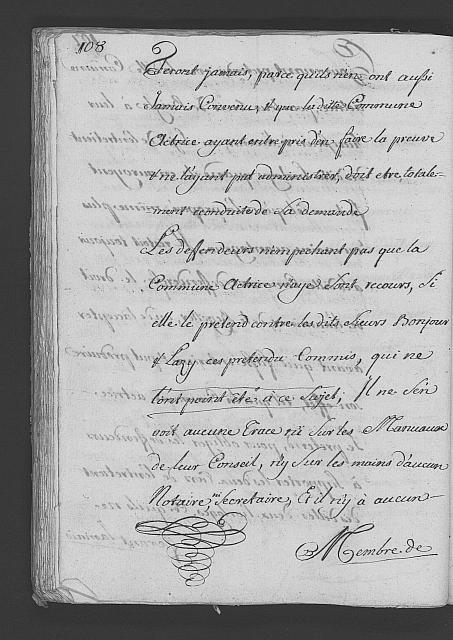 108
Feront jamais, parce qu'ils n'en ont aussi
Jamais Convenu, & que la dite Commune
Actrice ayant entre pris d'en faire la preuve
& ne l'ayant pas administrer, doit etre totale-
ment econduite de Sa demande
Les deffendeurs n'impechant pas que la
Commune Actrice naye Sont recours, Si
elle le pretend contre les dits Sieurs Bonjour
& Lazy ces pretendu Commis, qui ne
l'ont point été à ce Sujet; Il ne S'en
voit aucune Trace ni Sur les Manuaux
de leur Conseil, n'y Sur les mains d'aucun
Notaire, ni Secretaire, Et il n'y à aucun
Membre de